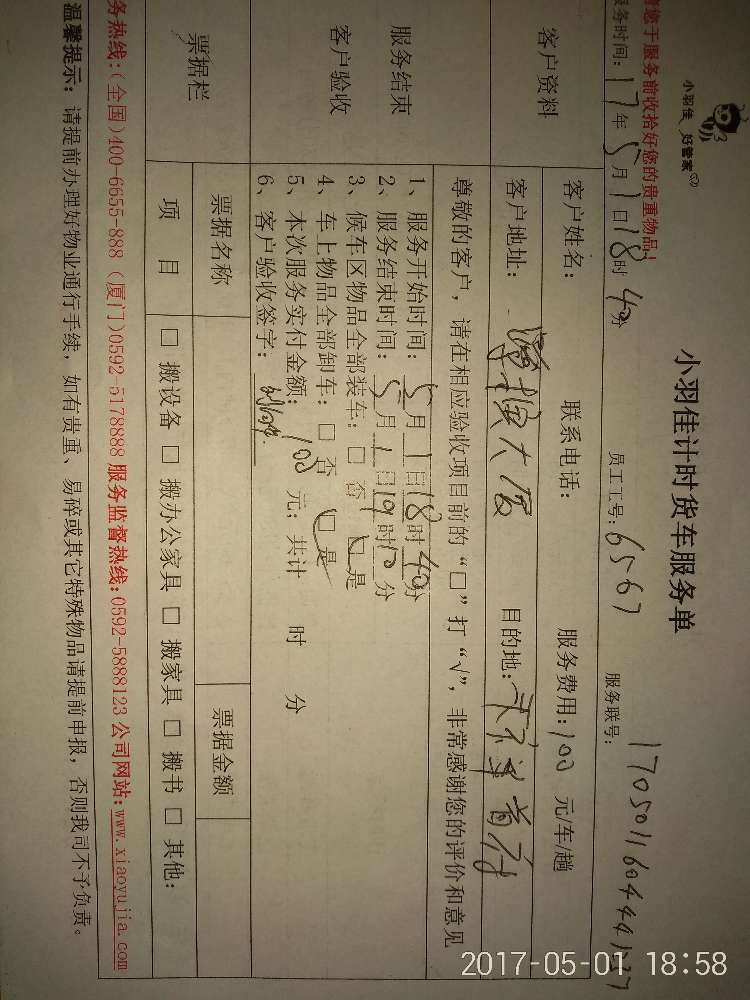 小羽佳 好管家
小羽佳计时货车服务单
请您于服务前收拾好您的贵重物品!
服务时间: 17年5月1日18时40分 员工工号: 6567 服务联号:
客户资料
客户姓名: 联系电话: 服务费用: 100 元/车/趟
客户地址: 大厦 目的地:
尊敬的客户，请在相应验收项目前的“□”打“√”，非常感谢您的评价和意见
服务结束
客户验收
1、服务开始时间: 5月1日18时40分
2、服务结束时间: 5月1日19时10分
3、候车区物品全部装车: □ 否 □ 是
4、车上物品全部卸车: □ 否 □ 是
5、本次服务实付金额: 100 元; 共计 时 分
6、客户验收签字:
票据栏
票据名称 票据金额
项 目 □ 搬设备 □ 搬办公家具 □ 搬家具 □ 搬书 □ 其他:
务热线:(全国)400-6655-888 (厦门)0592-5178888 服务监督热线:0592-5888123 公司网站:www.xiaoyujia.com
温馨提示: 请提前办理好物业通行手续，如有贵重、易碎或其它特殊物品请提前申报，否则我司不予负责。
2017-05-01 18:58